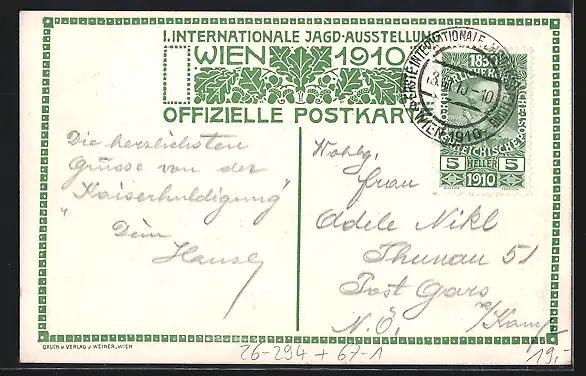 I. INTERNATIONALE JAGD-AUSSTELLUNG
WIEN 1910
OFFIZIELLE POSTKARTE
ERSTE INTERNATIONALE
WIEN 1910
5 HELLER 5
1910
Die herzlichsten
Grüsse von der
"Kaiserhuldigung"
Dein
Hansl
Wohlg.
Frau
Adele Nikl
Thunau 51
Post Gars
a/Kamp
N.Ö.
DRUCK U. VERLAG J. WEINER, WIEN
26-294 + 67-1
19,-